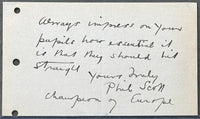 Always impress on yours
pupils how essential it
is that they should hit
straight
Yours truly
Phil Scott
Champion of Europe